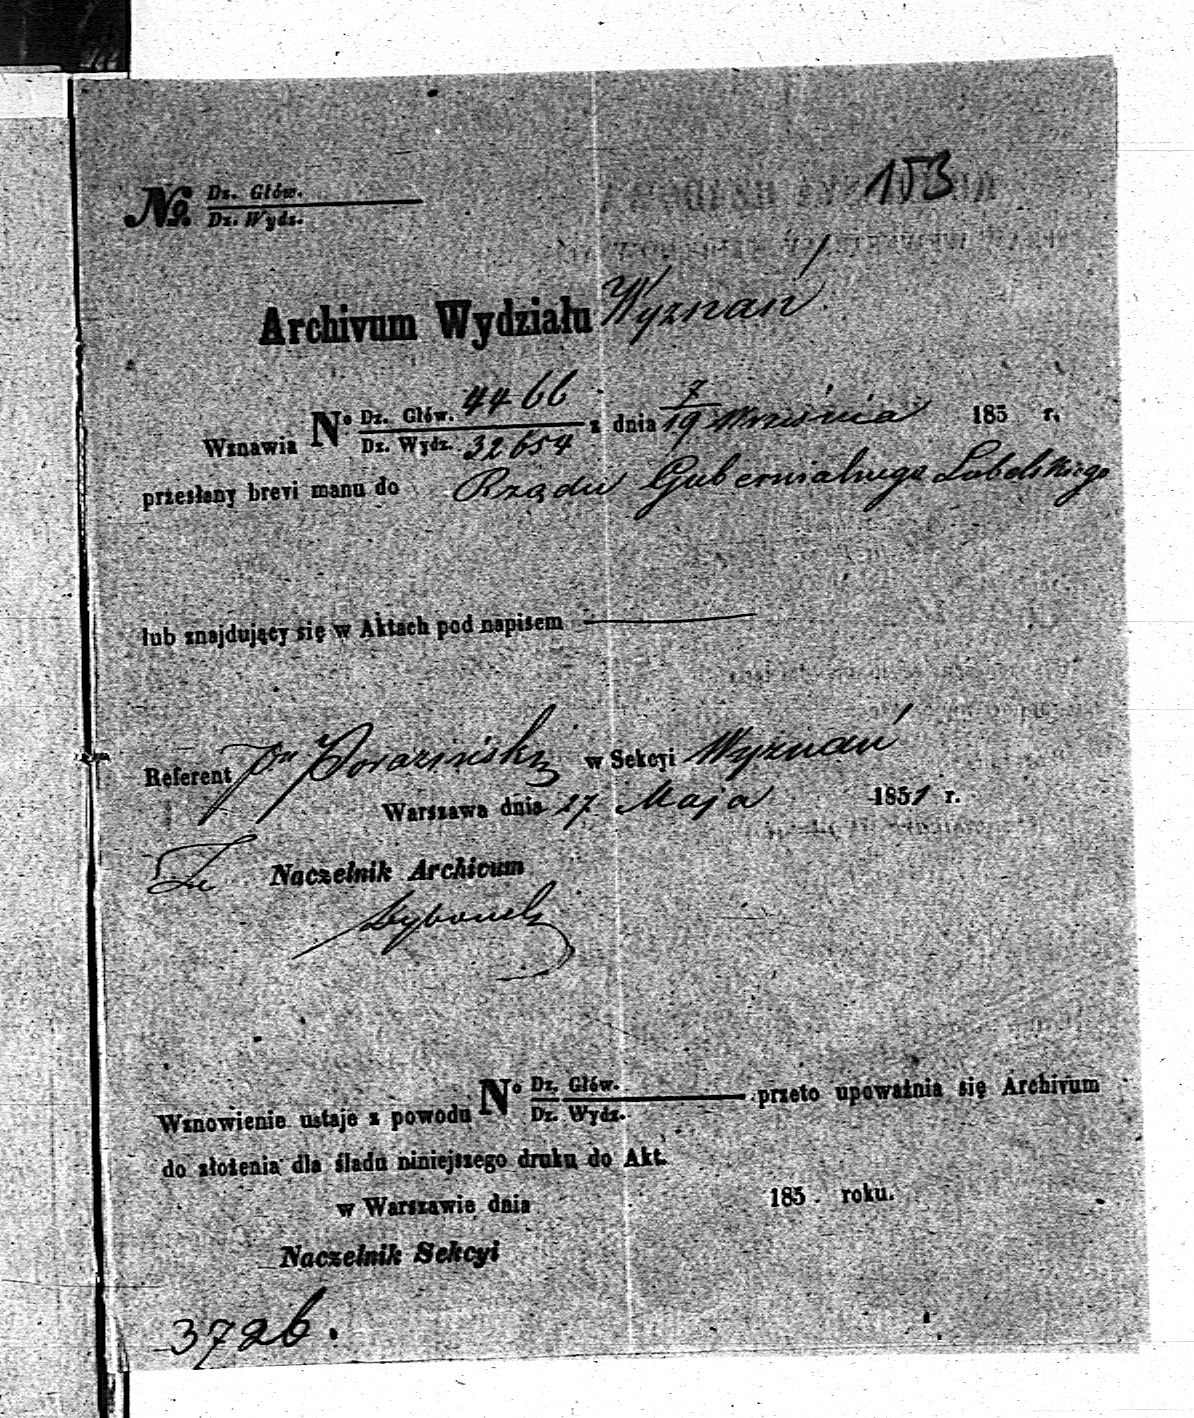 153
No. Dz. Głów.
Dz. Wydz.
Archivum Wydziału Wyznań
Wznawia No Dz. Głów. 4466 z dnia 7/19 Września 185 r.
Dz. Wydz. 32654
przesłany brevi manu do Rządu Gubernialnego Lubelskiego
lub znajdujący się w Aktach pod napisem
Referent Pn Porazińsky w Sekcyi Wyznań
Warszawa dnia 27 Maja 1851 r.
Za Naczelnik Archivum
Wznowienie ustaje z powodu No Dz. Głów. przeto upoważnia się Archivum
Dz. Wydz.
do złożenia dla śladu niniejszego druku do Akt.
w Warszawie dnia 185 . roku.
Naczelnik Sekcyi
3726.